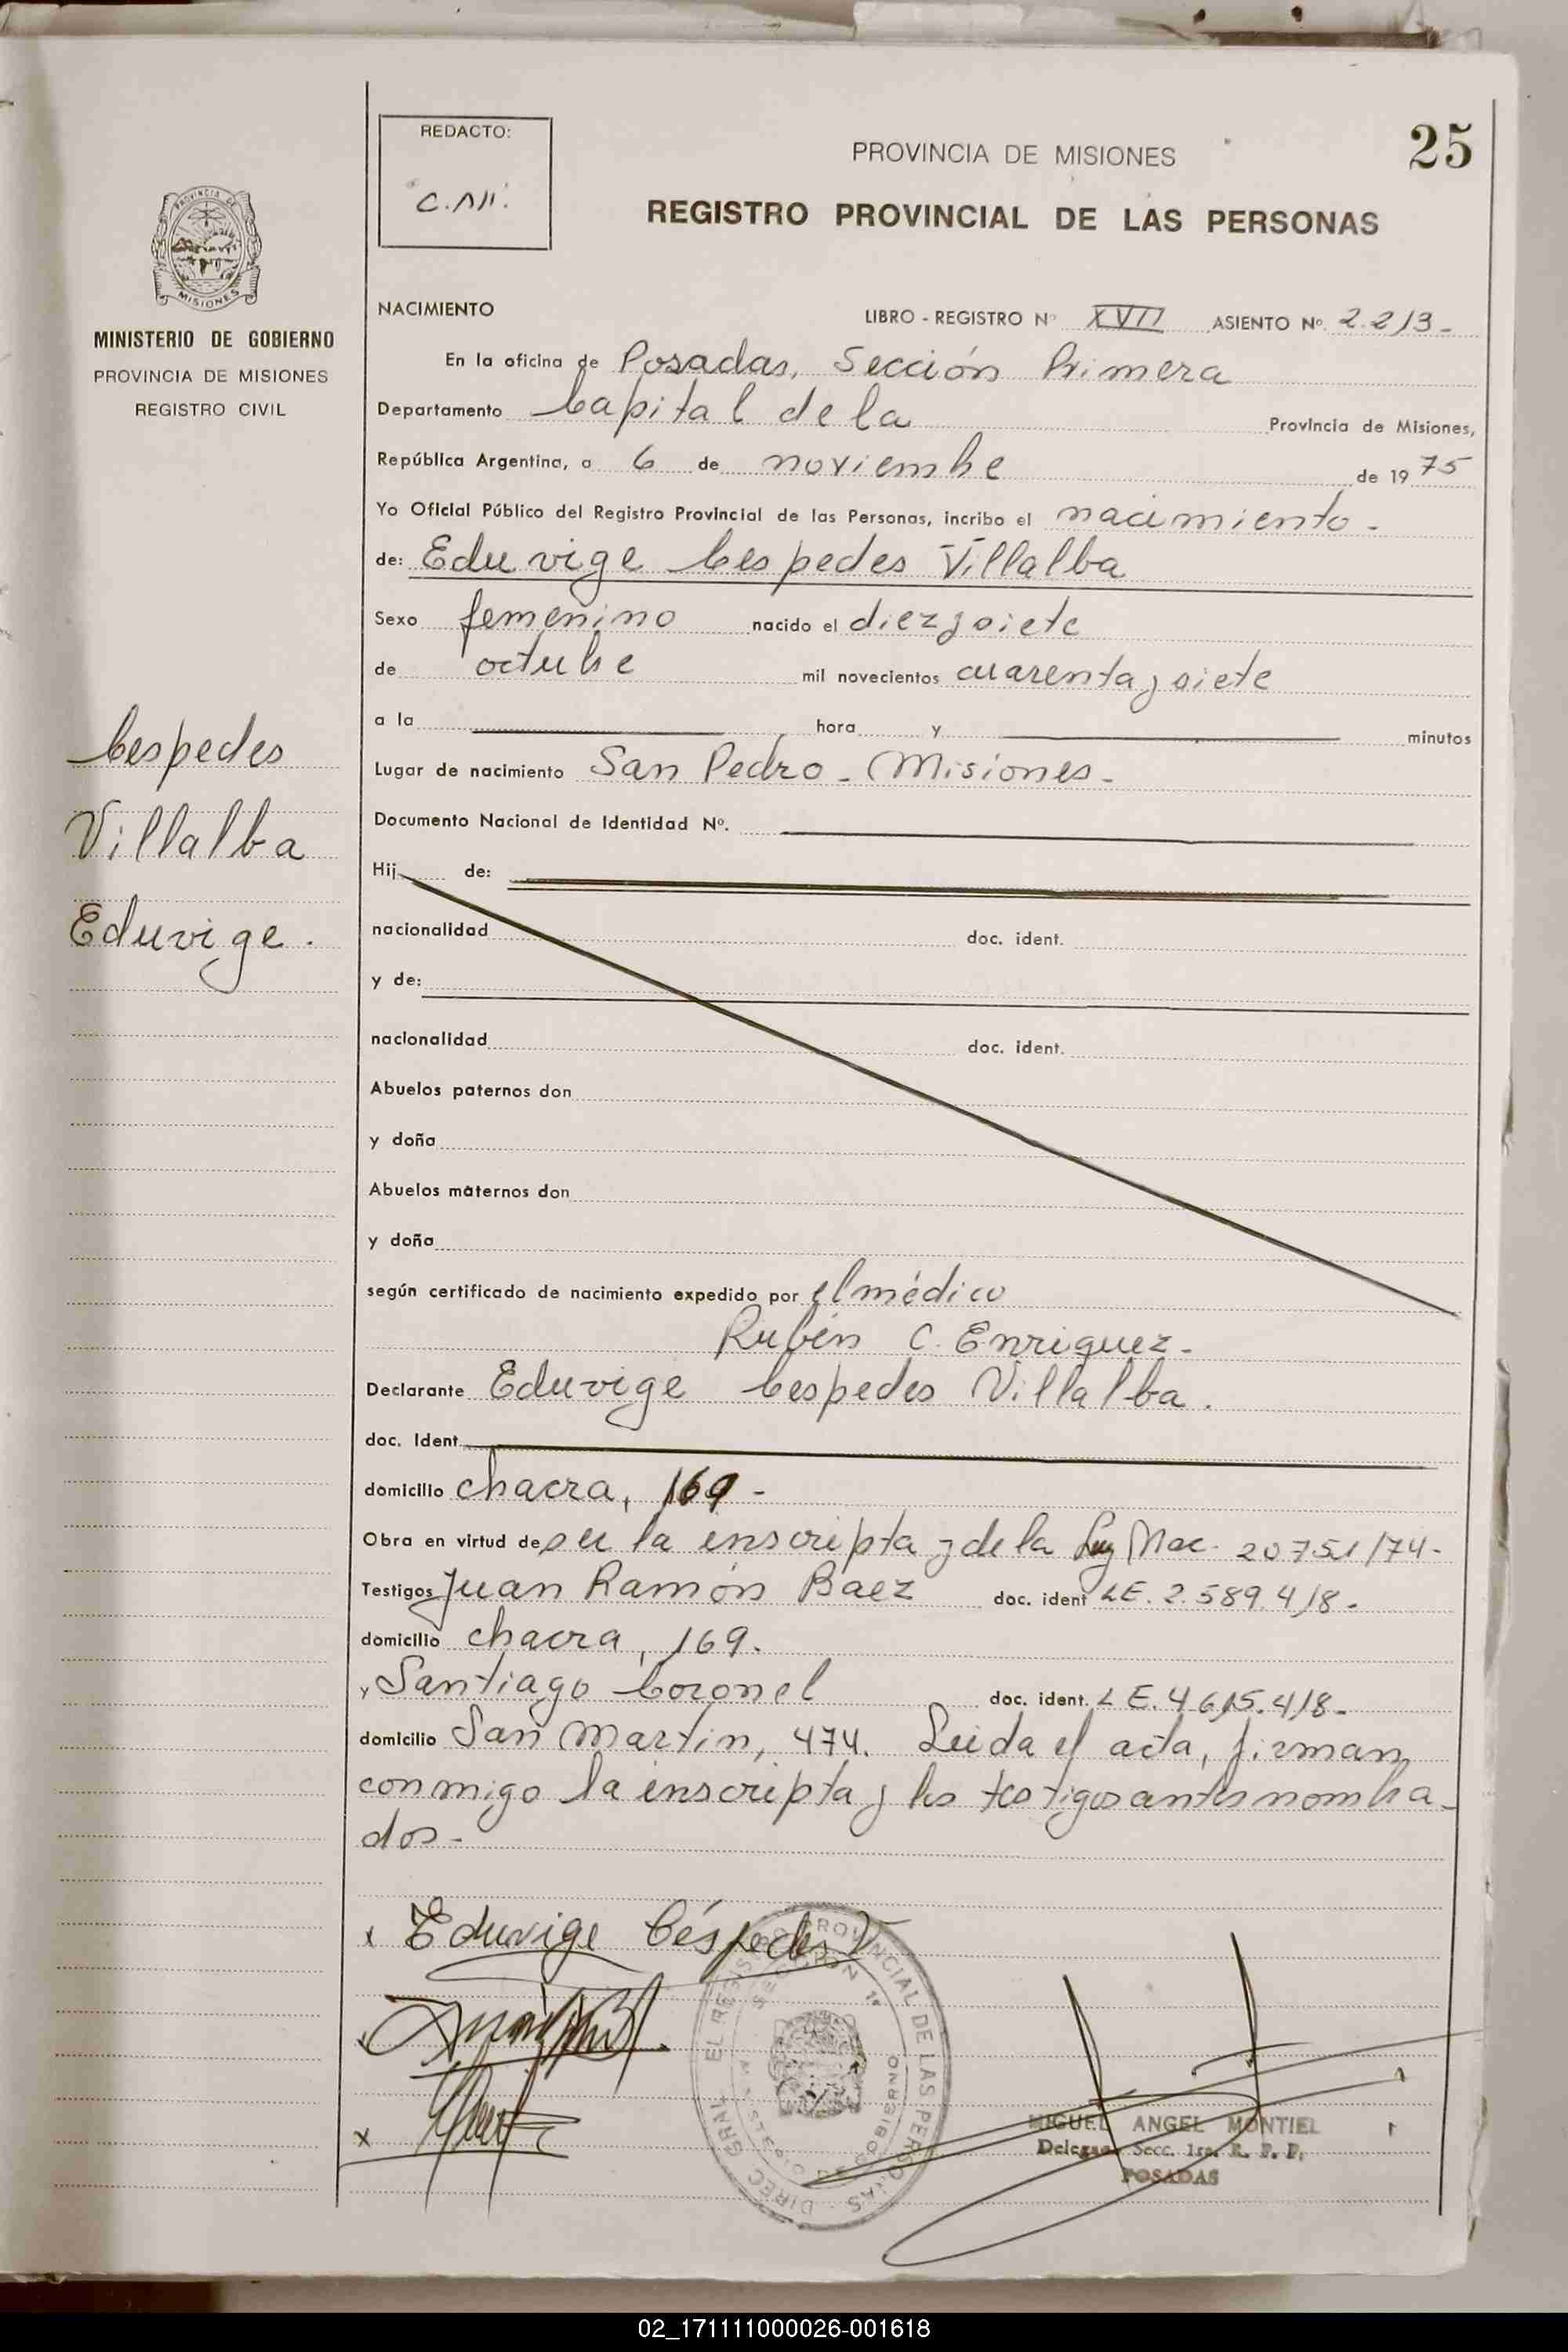 25
REDACTO:
PROVINCIA DE MISIONES
REGISTRO PROVINCIAL DE LAS PERSONAS
PROVINCIA DE
MISIONES
MINISTERIO DE GOBIERNO
PROVINCIA DE MISIONES
REGISTRO CIVIL
NACIMIENTO LIBRO - REGISTRO Nº XVII ASIENTO Nº 2.213-
En la oficina de Posadas, Sección Primera
Departamento Capital de la Provincia de Misiones,
República Argentina, a 6 de noviembre de 1975
Yo Oficial Público del Registro Provincial de las Personas, incribo el nacimiento.
de: Eduvige Cespedes Villalba
Sexo femenino nacido el diez y siete
de octubre mil novecientos cuarenta y siete
a la hora y minutos
Cespedes
Villalba
Eduvige.
Lugar de nacimiento San Pedro - Misiones -
Documento Nacional de Identidad Nº.
Hij de:
nacionalidad doc. ident.
y de:
nacionalidad doc. ident.
Abuelos paternos don
y doña
Abuelos maternos don
y doña
según certificado de nacimiento expedido por el médico
Rubén C. Enriquez -
Declarante Eduvige Cespedes Villalba.
doc. Ident.
domicilio chacra, 169 -
Obra en virtud de ser la inscripta y de la Ley Nac. 20751/74-
Testigos Juan Ramón Baez doc. ident LE. 2.589.418-
domicilio chacra, 169.
y Santiago Coronel doc. ident. LE. 4.615.418-
domicilio San Martin, 474. Leida el acta, firman
conmigo la inscripta y los testigos antes nombra-
dos-
x Eduvige Céspedes V
x
x
DIREC. GRAL. EL REGISTRO PROVINCIAL DE LAS PERSONAS
SECCION 1ª
GOBIERNO
MIGUEL ANGEL MONTIEL
Delegado Secc. 1ra. R. P. P.
POSADAS
02_171111000026-001618